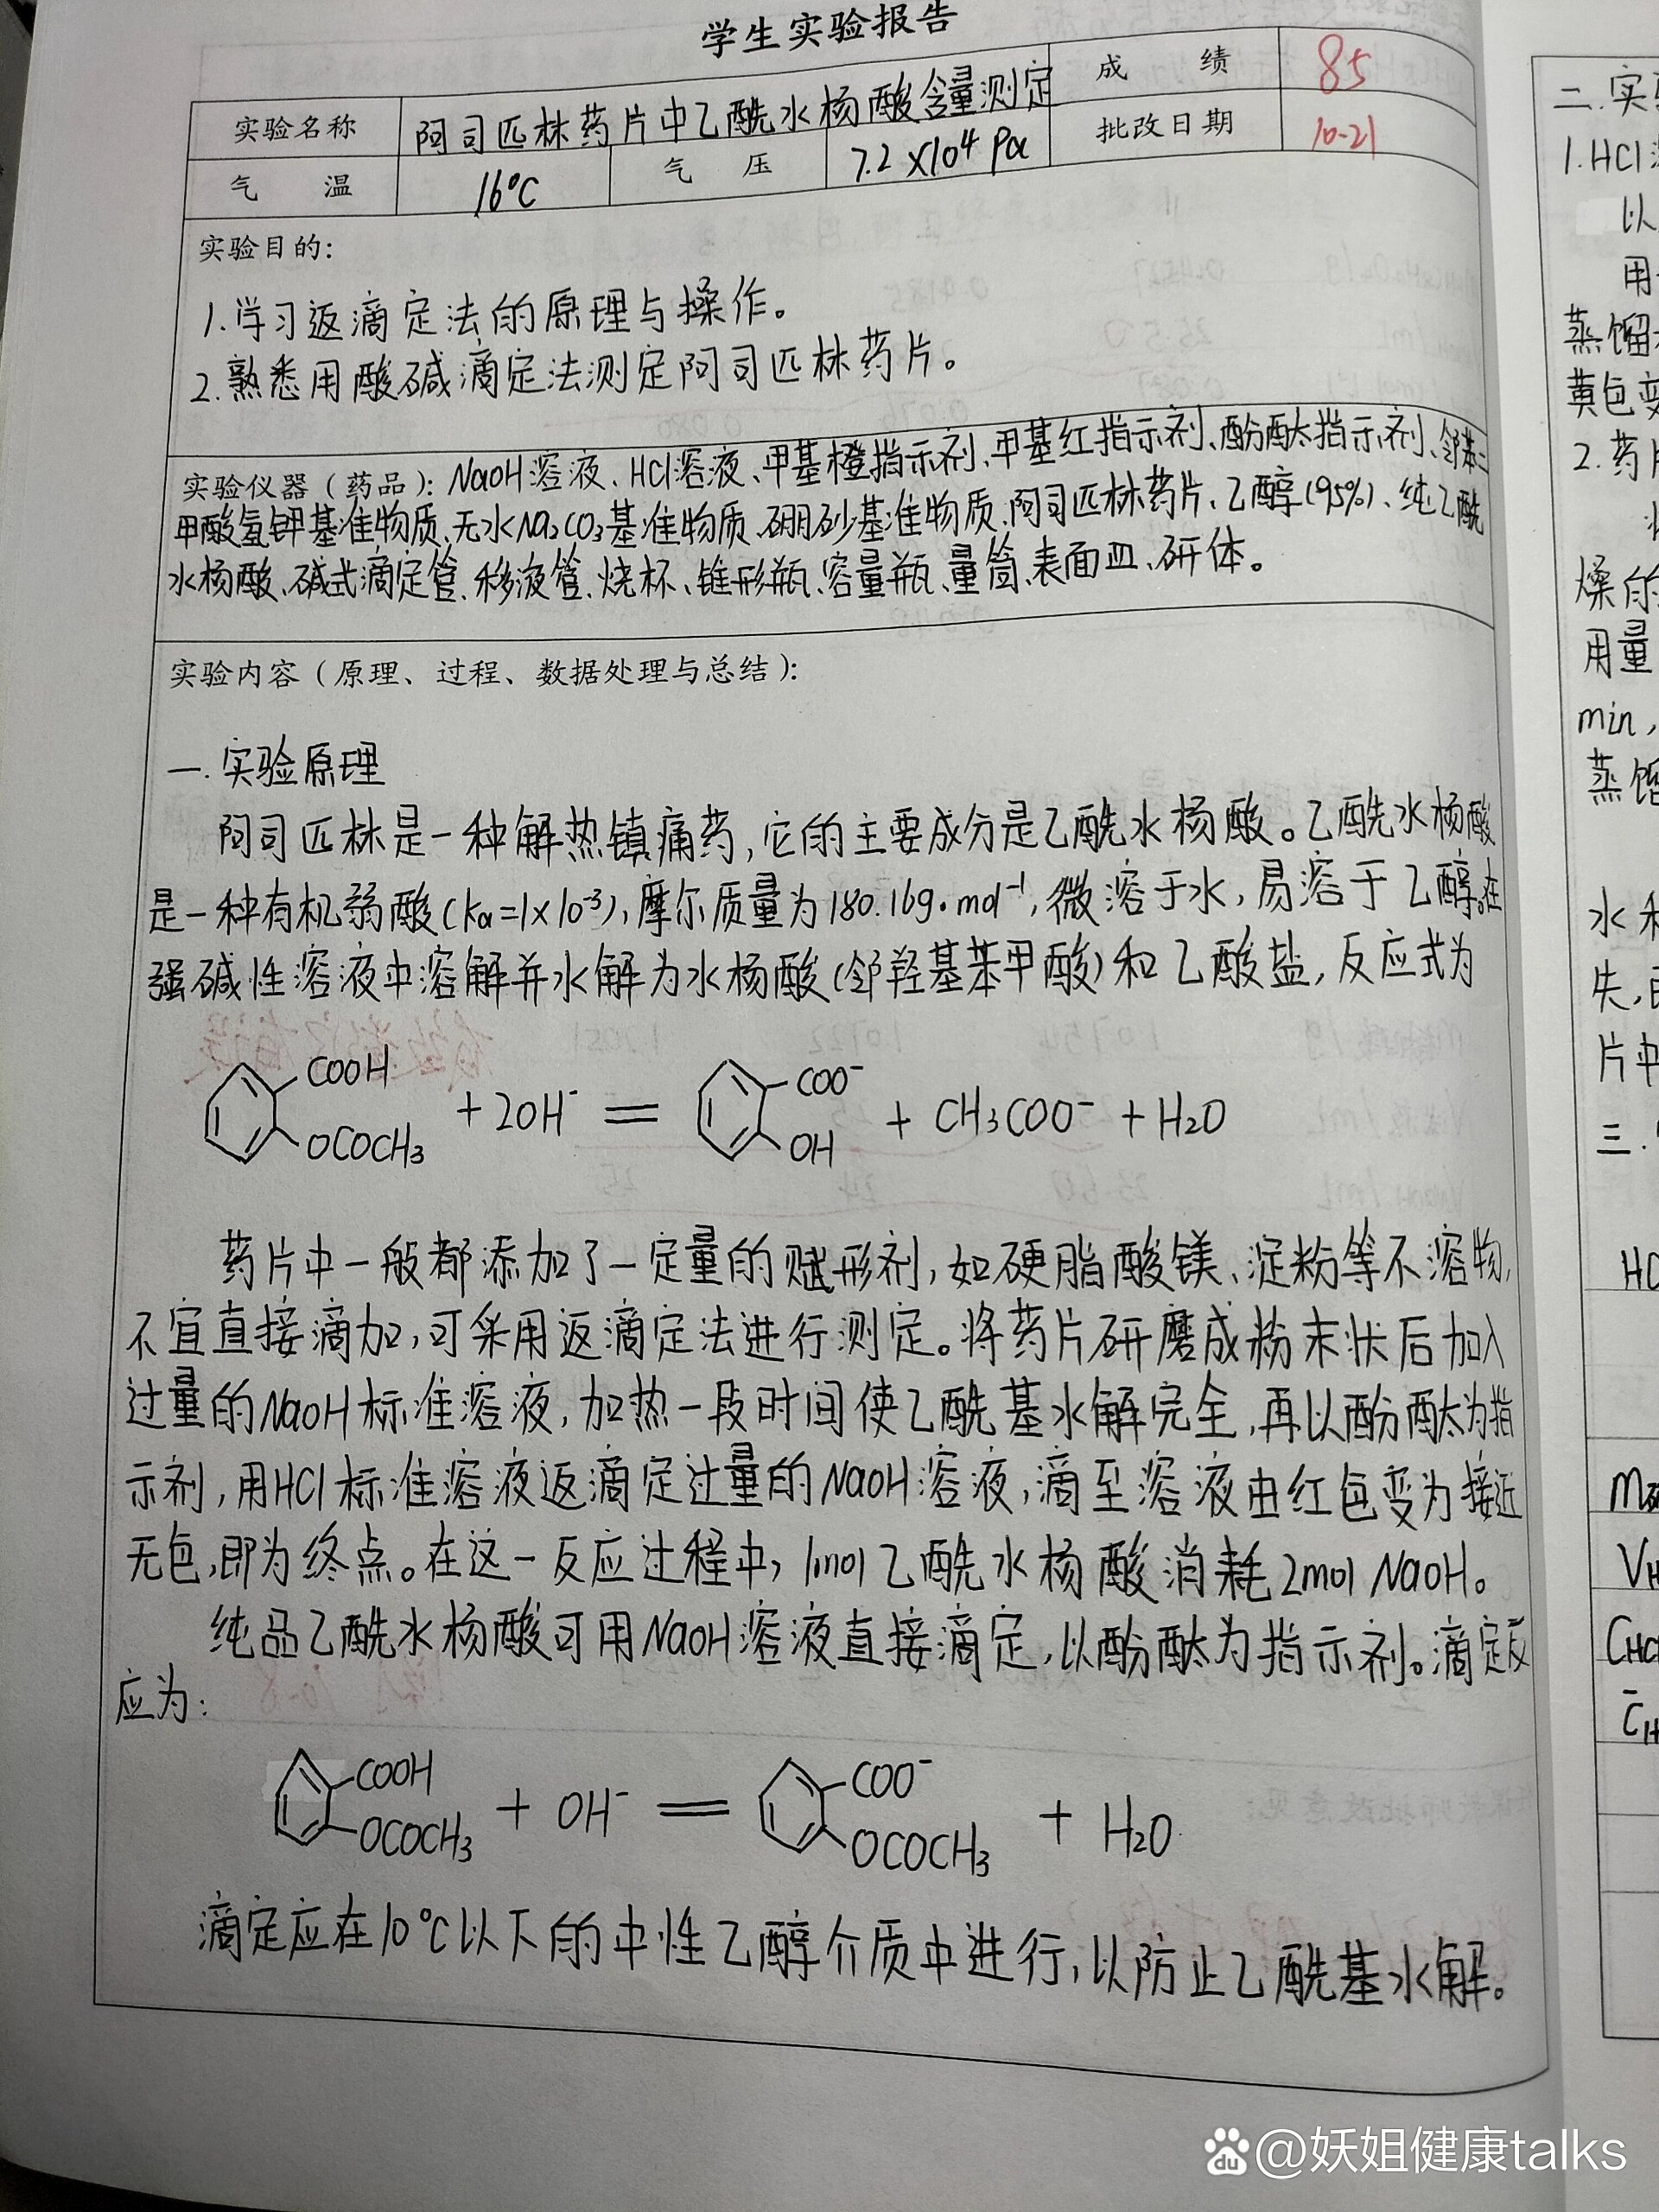 学生实验报告
实验名称 阿司匹林药片中乙酰水杨酸含量测定 成 绩 85
气 温 16°C 气 压 7.2×10⁴ Pa 批改日期 10-21
实验目的:
1.学习返滴定法的原理与操作。
2.熟悉用酸碱滴定法测定阿司匹林药片。
实验仪器(药品): NaOH溶液、HCl溶液、甲基橙指示剂、甲基红指示剂、酚酞指示剂、邻苯二
甲酸氢钾基准物质、无水Na₂CO₃基准物质、硼砂基准物质、阿司匹林药片、乙醇(95%)、纯乙酰
水杨酸、碱式滴定管、移液管、烧杯、锥形瓶、容量瓶、量筒、表面皿、研体。
实验内容(原理、过程、数据处理与总结):
一.实验原理
阿司匹林是一种解热镇痛药,它的主要成分是乙酰水杨酸。乙酰水杨酸
是一种有机弱酸(ka=1×10⁻³),摩尔质量为180.16g·mol⁻¹,微溶于水,易溶于乙醇。在
强碱性溶液中溶解并水解为水杨酸(邻羟基苯甲酸)和乙酸盐,反应式为
COOH OCOCH₃ + 2OH⁻ = COO⁻ OH + CH₃COO⁻ + H₂O
药片中一般都添加了一定量的赋形剂,如硬脂酸镁、淀粉等不溶物,
不宜直接滴加,可采用返滴定法进行测定。将药片研磨成粉末状后加入
过量的NaOH标准溶液,加热一段时间使乙酰基水解完全,再以酚酞为指
示剂,用HCl标准溶液返滴定过量的NaOH溶液,滴至溶液由红色变为接近
无色,即为终点。在这一反应过程中,1mol乙酰水杨酸消耗2mol NaOH。
纯品乙酰水杨酸可用NaOH溶液直接滴定,以酚酞为指示剂。滴定反
应为:
COOH OCOCH₃ + OH⁻ = COO⁻ OCOCH₃ + H₂O
滴定应在10°C以下的中性乙醇介质中进行,以防止乙酰基水解。
二.实
1.HCl
以
用
蒸馏
黄色变
2.药
燥的
用量
min,
蒸馏
水
失,
片中
三.
HC
m
V
CHCl
@妖姐健康talks